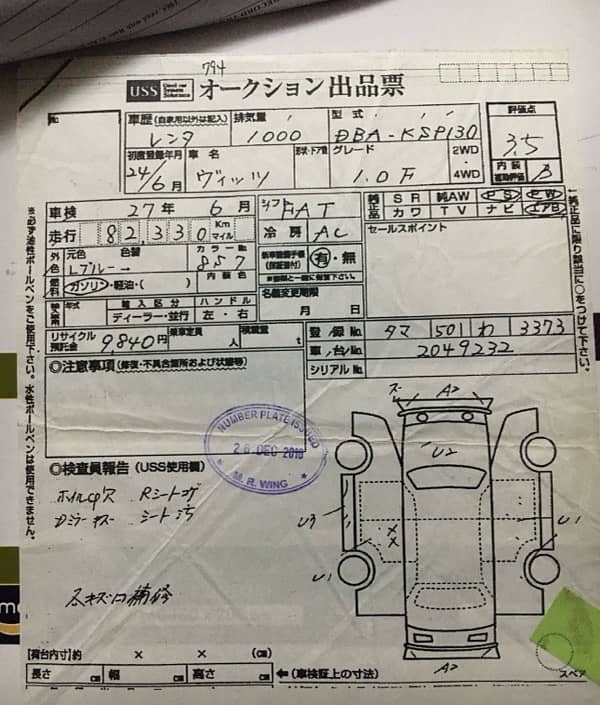 794
USS オークション出品票
車歴(自家用以外は記入) 排気量 型式 評価点
レンタ 1000 DBA-KSP130 3.5
初度登録年月 車名 形状・ドア数 グレード 2WD 内装
24/6月 ヴィッツ 1.0F 4WD 補助評価 B
車検 27年 6月 シフト FAT 純正品 SR 純AW PS PW
走行 82,330 Km マイル 冷房 AC カワ TV ナビ エアB
外色 元色 色替 カラーNo. 新車整備手帳(保証書付) 有・無 セールスポイント
Lブルー→ 857
ガソリン・軽油・( ) 内装色 名義変更期限
年式 輸入区分 ハンドル 月 日
ディーラー・並行 左・右
リサイクル預託金 9,840円 乗車定員 人 積載量 t
登録No. タマ 501 わ 3373
車台No. 2049232
シリアルNo.
◎注意事項(修復・不具合箇所および状態等)
NUMBER PLATE ISSUED
26 DEC 2016
M.R. WING
◎検査員報告(USS使用欄)
ホイルCPワレ Rシートコゲ
Dミラーキズ シート汚
スキズ 補修
A2
U2
U3
U1
U1
A2
【荷台内寸】約 × × (cm)
長さ cm 幅 cm 高さ cm ←(車検証上の寸法)
スペア
※必ず油性ボールペンをご使用下さい。水性ボールペンは使用できません。
←純正品に限り該当に○をつけて下さい。